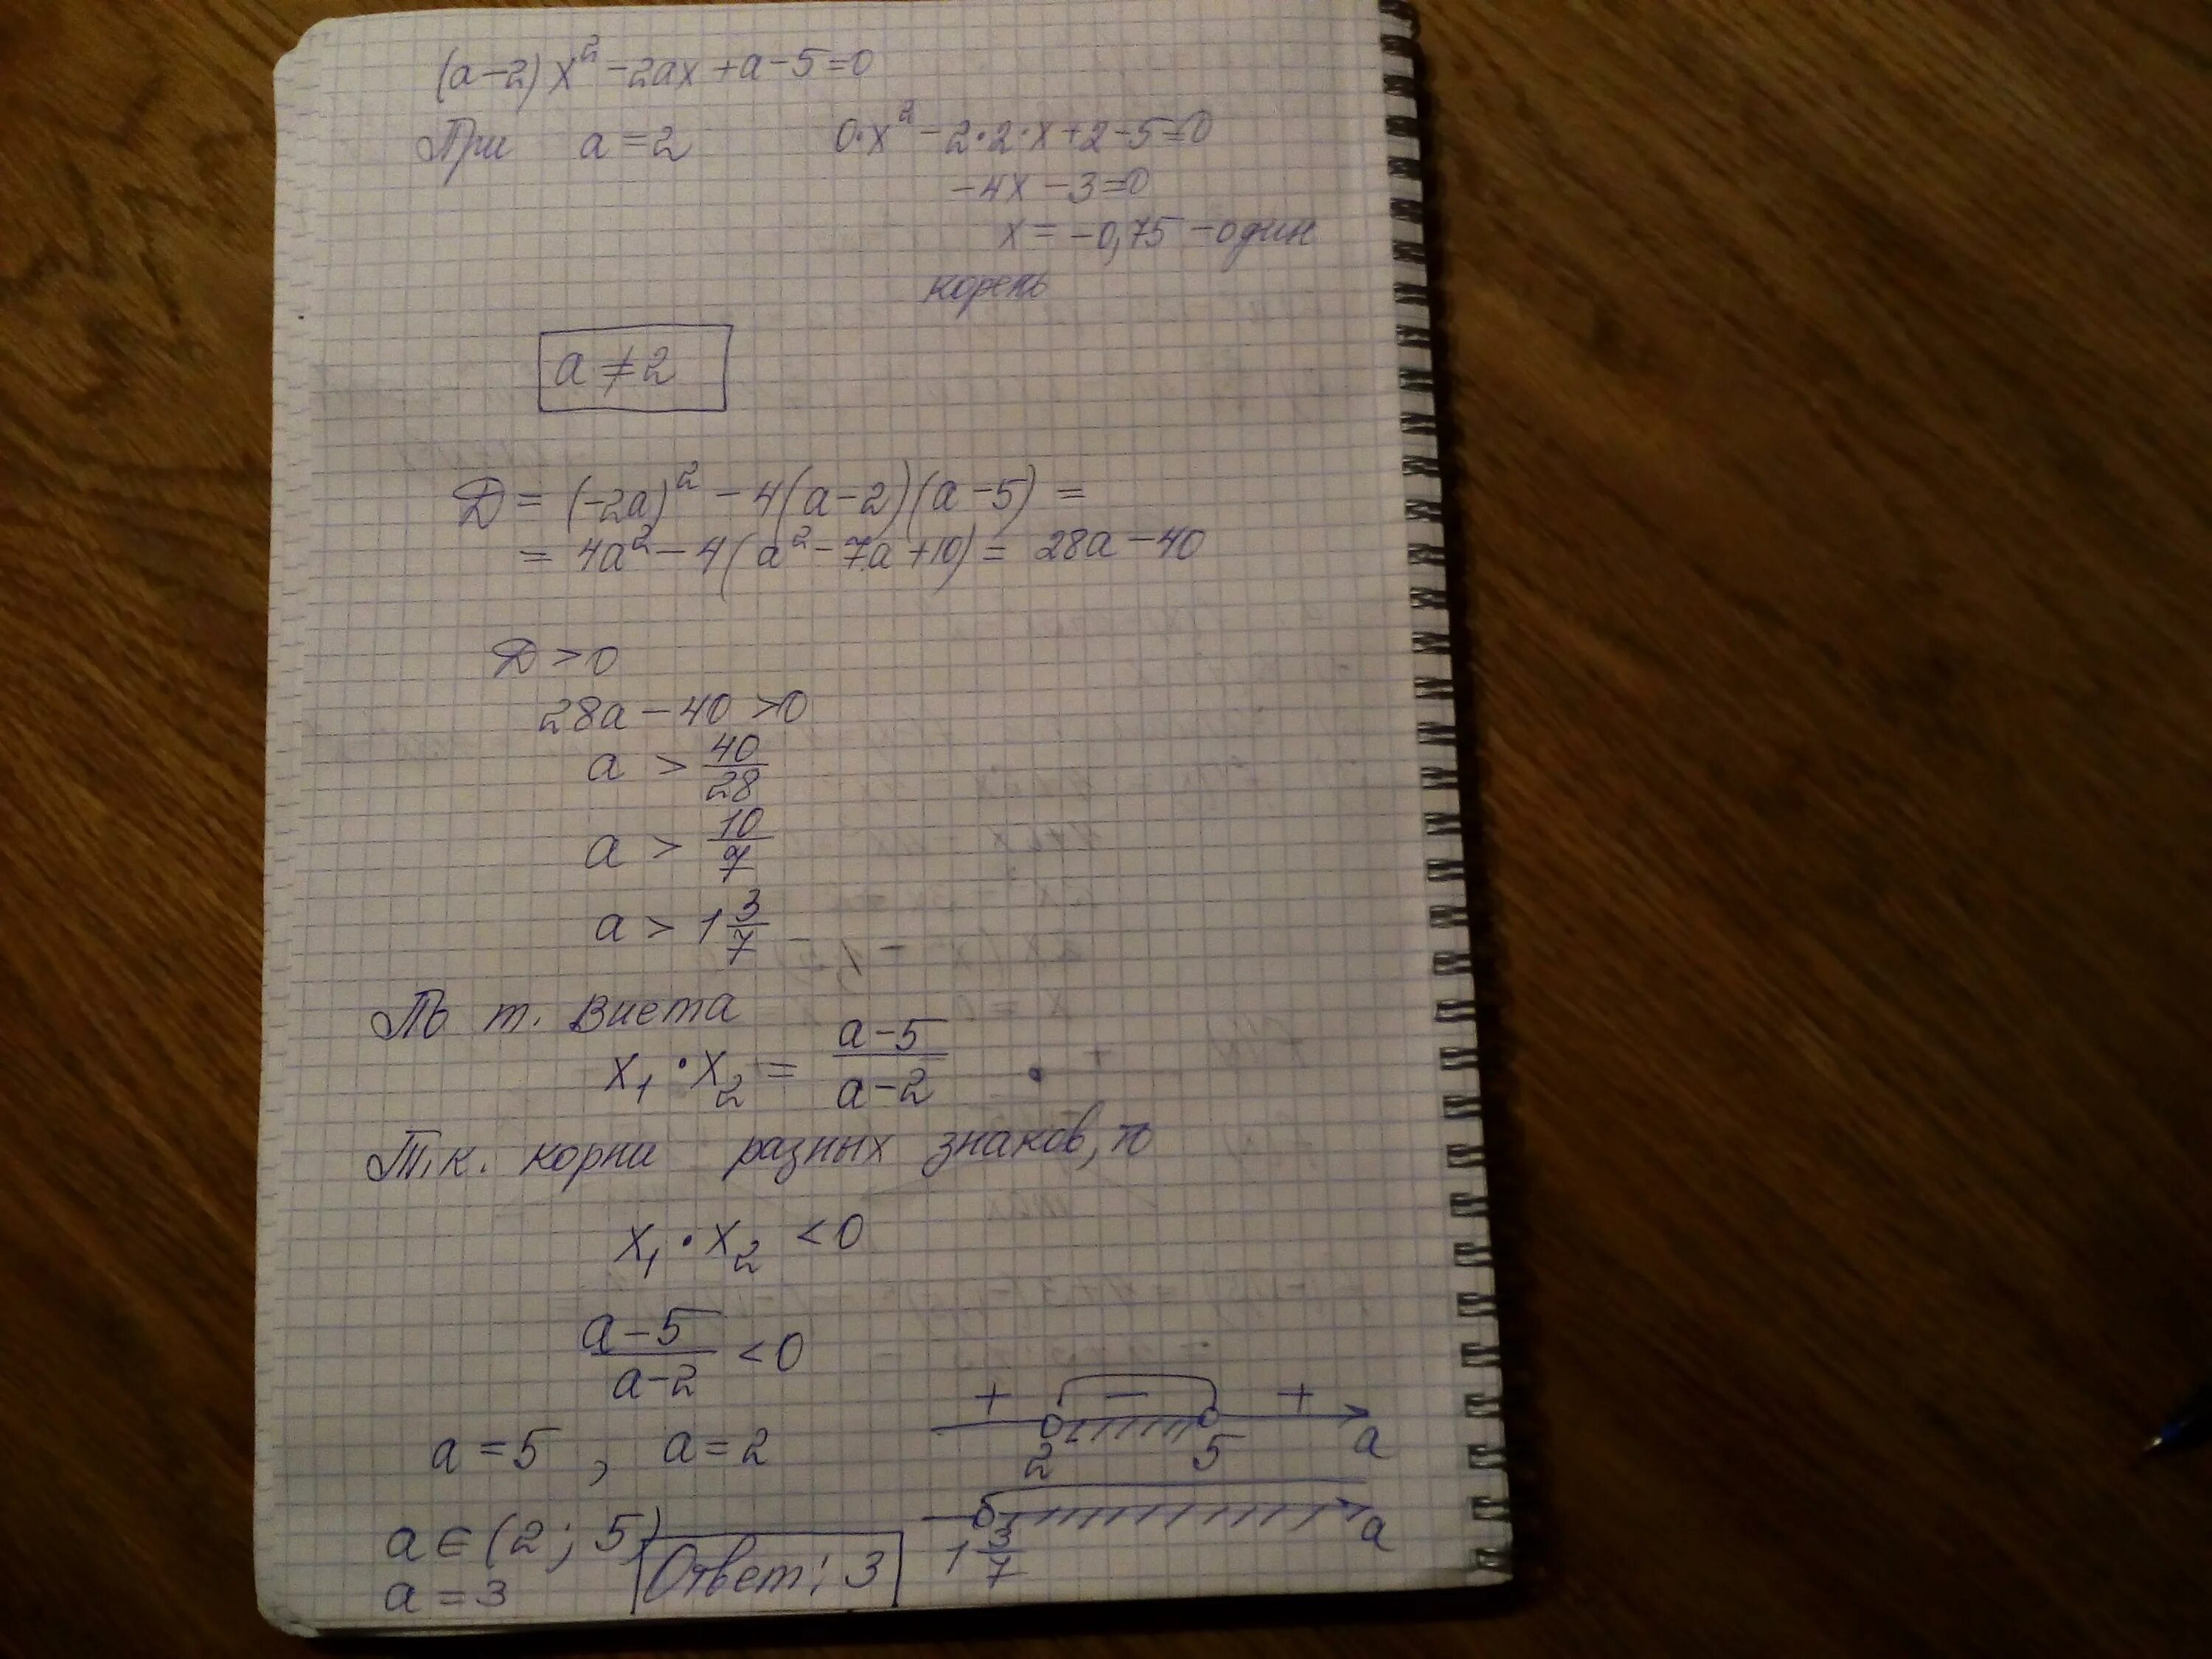 (a-2)x² -2ax +a-5=0
При a=2 0·x² - 2·2·x+2-5=0
-4x -3=0
x = -0,75 -один
корень
a ≠ 2
Д = (-2a)² - 4(a-2)(a-5) =
= 4a² - 4(a² - 7a +10) = 28a -40
Д > 0
28a - 40 > 0
a > 40/28
a > 10/7
a > 1 3/7
По т. Виета
x₁ · x₂ = (a-5)/(a-2)
Т.к. корни разных знаков, то
x₁ · x₂ < 0
(a-5)/(a-2) < 0
+ - +
a = 5 , a = 2
2 5 a
a ∈ (2; 5)
1 3/7 a
a = 3
Ответ: 3